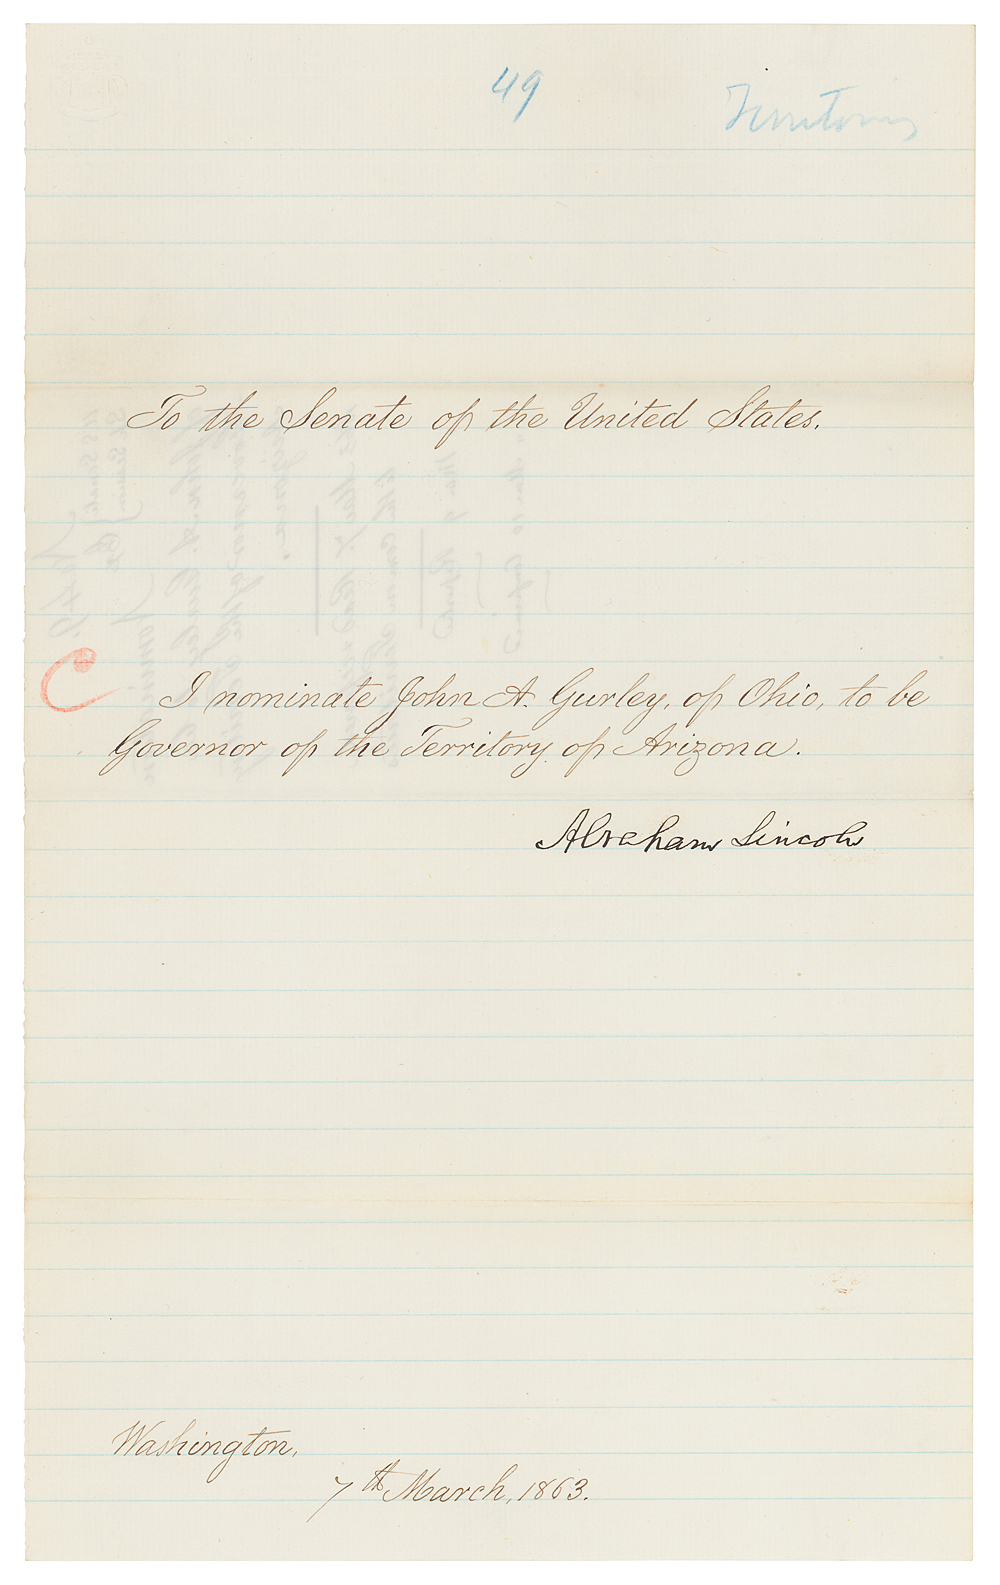 49
Territories
To the Senate of the United States.
I nominate John A. Gurley, of Ohio, to be
Governor of the Territory of Arizona.
Abraham Lincoln
Washington,
7th March, 1863.